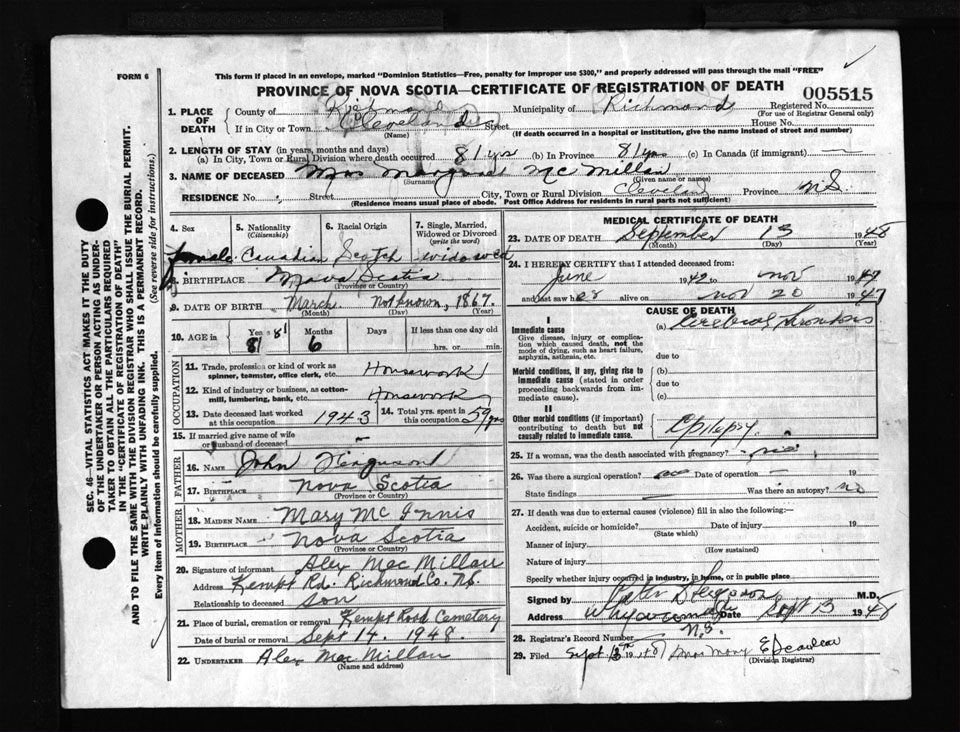 FORM 6
This form if placed in an envelope, marked "Dominion Statistics—Free, penalty for improper use $300," and properly addressed will pass through the mail "FREE"
PROVINCE OF NOVA SCOTIA—CERTIFICATE OF REGISTRATION OF DEATH
005515
1. PLACE OF DEATH
County of Richmond Municipality of Richmond Registered No.
(For use of Registrar General only)
If in City or Town Cleveland Street House No.
(Name) (If death occurred in a hospital or institution, give the name instead of street and number)
2. LENGTH OF STAY (in years, months and days)
(a) In City, Town or Rural Division where death occurred 81 yrs (b) In Province 81 yrs (c) In Canada (if immigrant) —
3. NAME OF DECEASED Mrs Margaret McMillan
(Surname) (Given name or names)
RESIDENCE No. Street City, Town or Rural Division Cleveland Province N.S.
(Residence means usual place of abode. Post Office Address for residents in rural parts not sufficient)
4. Sex 5. Nationality (Citizenship) 6. Racial Origin 7. Single, Married, Widowed or Divorced (write the word)
female Canadian Scotch widowed
8. BIRTHPLACE Nova Scotia
(Province or Country)
9. DATE OF BIRTH March Not known, 1867
(Month) (Day) (Year)
10. AGE in Years 81 81 Months 6 Days If less than one day old
hrs. or min.
OCCUPATION
11. Trade, profession or kind of work as spinner, teamster, office clerk, etc. Housework
12. Kind of industry or business, as cotton-mill, lumbering, bank, etc. Housework
13. Date deceased last worked at this occupation 1943 14. Total yrs. spent in this occupation 59 yrs
15. If married give name of wife or husband of deceased -
FATHER
16. NAME John Ferguson
17. BIRTHPLACE Nova Scotia
(Province or Country)
MOTHER
18. MAIDEN NAME Mary McInnis
19. BIRTHPLACE Nova Scotia
(Province or Country)
20. Signature of informant Alex MacMillan
Address Kempt Rd. Richmond Co. N.S.
Relationship to deceased son
21. Place of burial, cremation or removal Kempt Road Cemetery
Date of burial or removal Sept 14. 1948.
22. UNDERTAKER Alex MacMillan
(Name and address)
MEDICAL CERTIFICATE OF DEATH
23. DATE OF DEATH September 13 1948
(Month) (Day) (Year)
24. I HEREBY CERTIFY that I attended deceased from:
June 1942 to Nov 1947
and last saw her alive on Nov 20 1947
CAUSE OF DEATH
I
Immediate cause (a) Cerebral Thrombosis
Give disease, injury or complication which caused death, not the mode of dying, such as heart failure, asphyxia, asthenia, etc.
due to
Morbid conditions, if any, giving rise to immediate cause (stated in order proceeding backwards from immediate cause).
(b)
due to
(c)
II
Other morbid conditions (if important) contributing to death but not causally related to immediate cause.
Epilepsy
25. If a woman, was the death associated with pregnancy? no
26. Was there a surgical operation? no Date of operation — 19
State findings — Was there an autopsy? no
27. If death was due to external causes (violence) fill in also the following:—
Accident, suicide or homicide? Date of injury 19
(State which)
Manner of injury
(How sustained)
Nature of injury
Specify whether injury occurred in industry, in home, or in public place
Signed by M.D.
Address Date Sept 13 1948
N.S.
28. Registrar's Record Number
29. Filed Sept 13th 1948 Mrs Mary E
(Division Registrar)
SEC. 46—VITAL STATISTICS ACT MAKES IT THE DUTY OF THE UNDERTAKER OR PERSON ACTING AS UNDERTAKER TO OBTAIN ALL THE PARTICULARS REQUIRED IN THE "CERTIFICATE OF REGISTRATION OF DEATH" AND TO FILE THE SAME WITH THE DIVISION REGISTRAR WHO SHALL ISSUE THE BURIAL PERMIT.
WRITE PLAINLY WITH UNFADING INK. THIS IS A PERMANENT RECORD.
Every item of information should be carefully supplied. (See reverse side for instructions.)